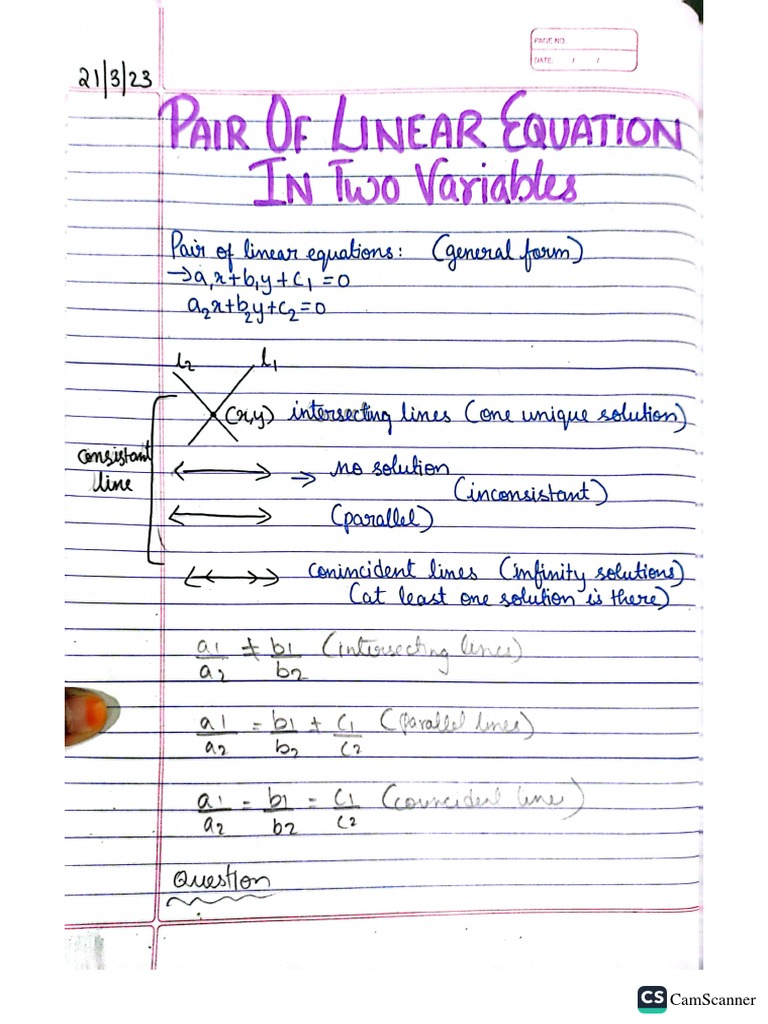 PAGE NO.
DATE: / /
21/3/23
PAIR OF LINEAR EQUATION
IN TWO VARIABLES
Pair of linear equations: (general form)
→ a₁x + b₁y + c₁ = 0
a₂x + b₂y + c₂ = 0
L₂ L₁
(x,y) intersecting lines (one unique solution)
consistant
line
→ no solution
(inconsistant)
(parallel)
conincident lines (infinity solutions)
(at least one solution is there)
a₁/a₂ ≠ b₁/b₂ (intersecting lines)
a₁/a₂ = b₁/b₂ ≠ c₁/c₂ (parallel lines)
a₁/a₂ = b₁/b₂ = c₁/c₂ (councident line)
Question
CS CamScanner